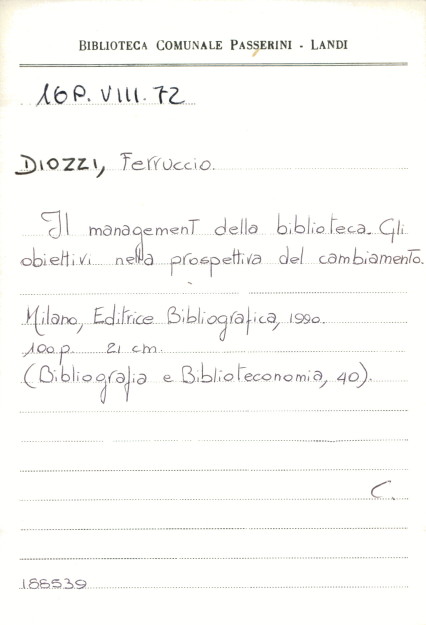 BIBLIOTECA COMUNALE PASSERINI - LANDI
16P. VIII. 72
DIOZZI, Ferruccio.
Il management della biblioteca. Gli
obiettivi nella prospettiva del cambiamento.
Milano, Editrice Bibliografica, 1990.
100p. 21 cm.
(Bibliografia e Biblioteconomia, 40).
C.
188539